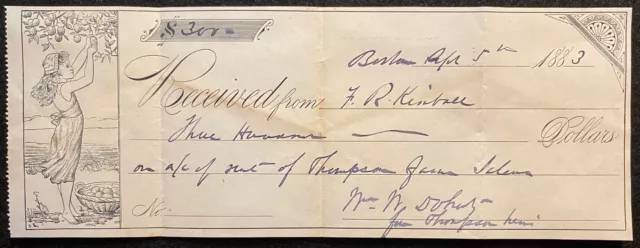 $ 300
Boston Apl 5th 1883
Received from F. R. Kimball
Three Hundred Dollars
on a/c of rent of Thompson Farm Salem
No.
Wm W. Doherty
for Thompson heirs